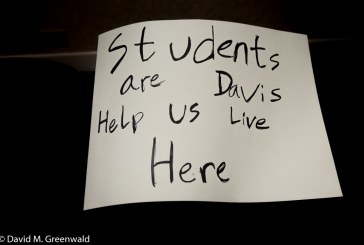 Students
are Davis
Help us Live
Here
© David M. Greenwald